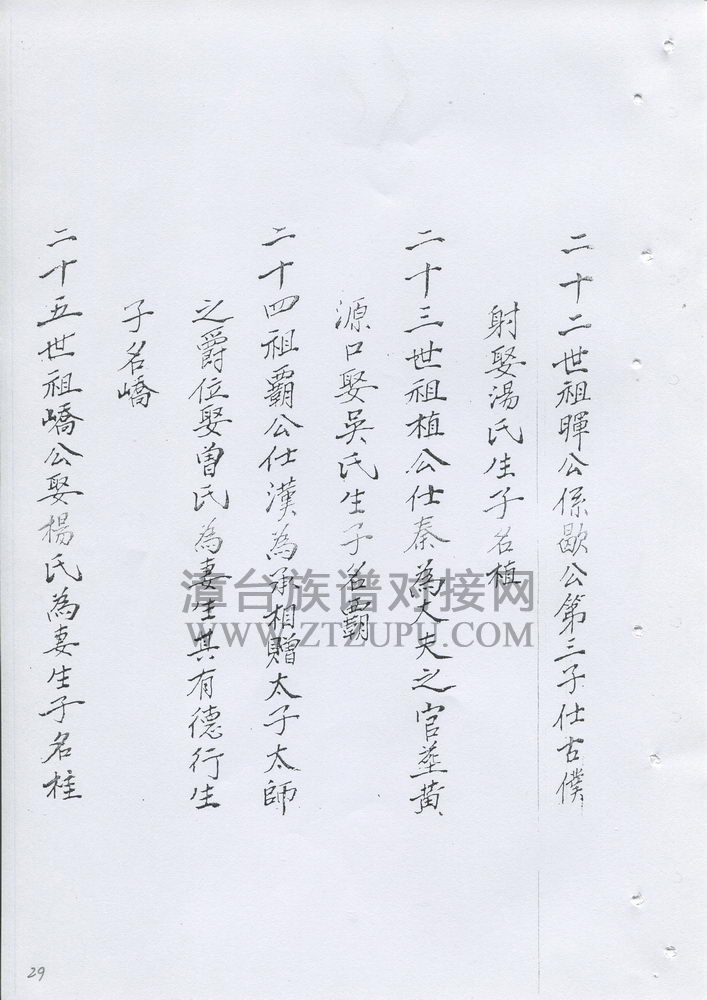 二十二世祖暉公係歇公第三子仕古僕
射娶湯氏生子名植
二十三世祖植公仕秦為大夫之官塟黄
源口娶吳氏生子名霸
二十四祖霸公仕漢為承相贈太子太師
之爵位娶曾氏為妻生其有德行生
子名嶠
二十五世祖嶠公娶楊氏為妻生子名桂
漳台族谱对接网
WWW.ZTZUPU.COM
29